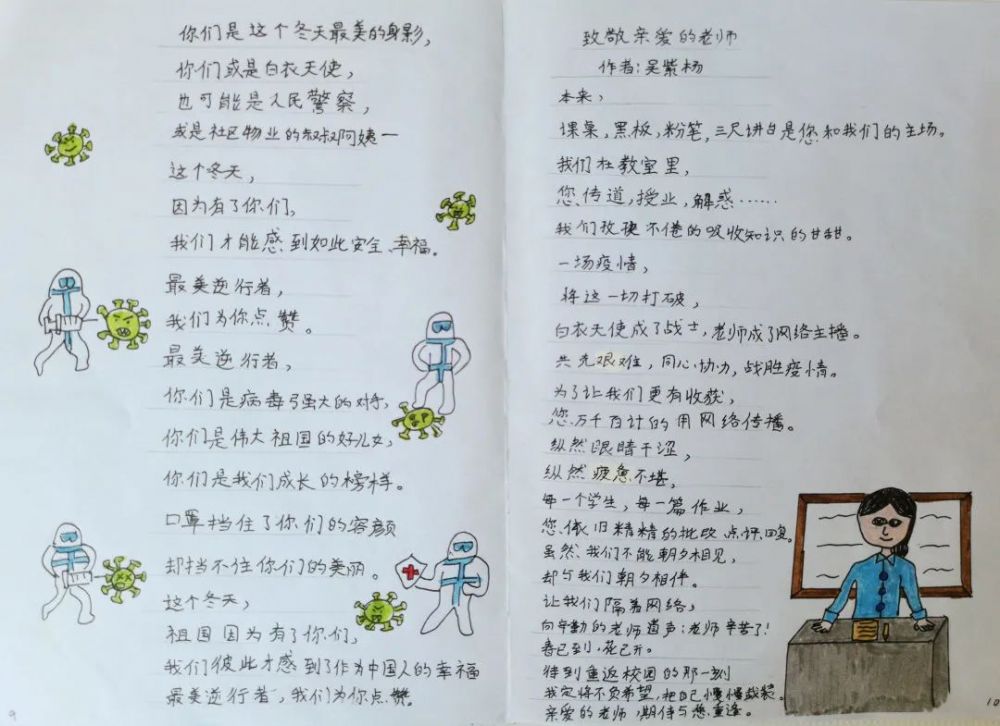 你们是这个冬天最美的身影，
你们或是白衣天使，
也可能是人民警察，
或是社区物业的叔叔阿姨—
这个冬天，
因为有了你们，
我们才能感到如此安全、幸福。
最美逆行者，
我们为你点赞。
最美逆行者，
你们是病毒强大的对手，
你们是伟大祖国的好儿女，
你们是我们成长的榜样。
口罩挡住了你们的容颜
却挡不住你们的美丽。
这个冬天，
祖国因为有了你们，
我们彼此才感到了作为中国人的幸福
最美逆行者，我们为你点赞
9
致敬亲爱的老师
作者：吴紫杨
本来，
课桌，黑板，粉笔，三尺讲台是您和我们的主场。
我们在教室里，
您传道，授业，解惑……
我们孜孜不倦的吸收知识的甘甜。
一场疫情，
将这一切打破，
白衣天使成了战士，老师成了网络主播。
共克艰难，同心协力，战胜疫情。
为了让我们更有收获，
您万千百计的用网络传播。
纵然眼睛干涩，
纵然疲惫不堪，
每一个学生，每一篇作业，
您依旧精精的批改点评回复。
虽然我们不能朝夕相见，
却与我们朝夕相伴。
让我们隔着网络，
向辛勤的老师道声：老师辛苦了！
春已到，花已开。
待到重返校园的那一刻
我定将不负希望，把自己慢慢
亲爱的老师，期待与您重逢。